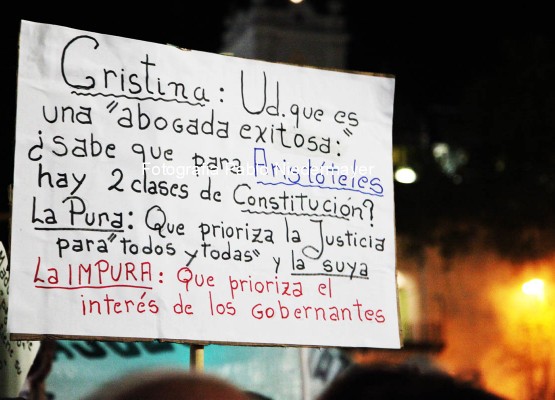 Cristina: Ud. que es
una "abogada exitosa:"
¿Sabe que para Aristóteles
hay 2 clases de Constitución?
La Pura: Que prioriza la Justicia
para "todos y todas" y la suya
La IMPURA: Que prioriza el
interés de los Gobernantes